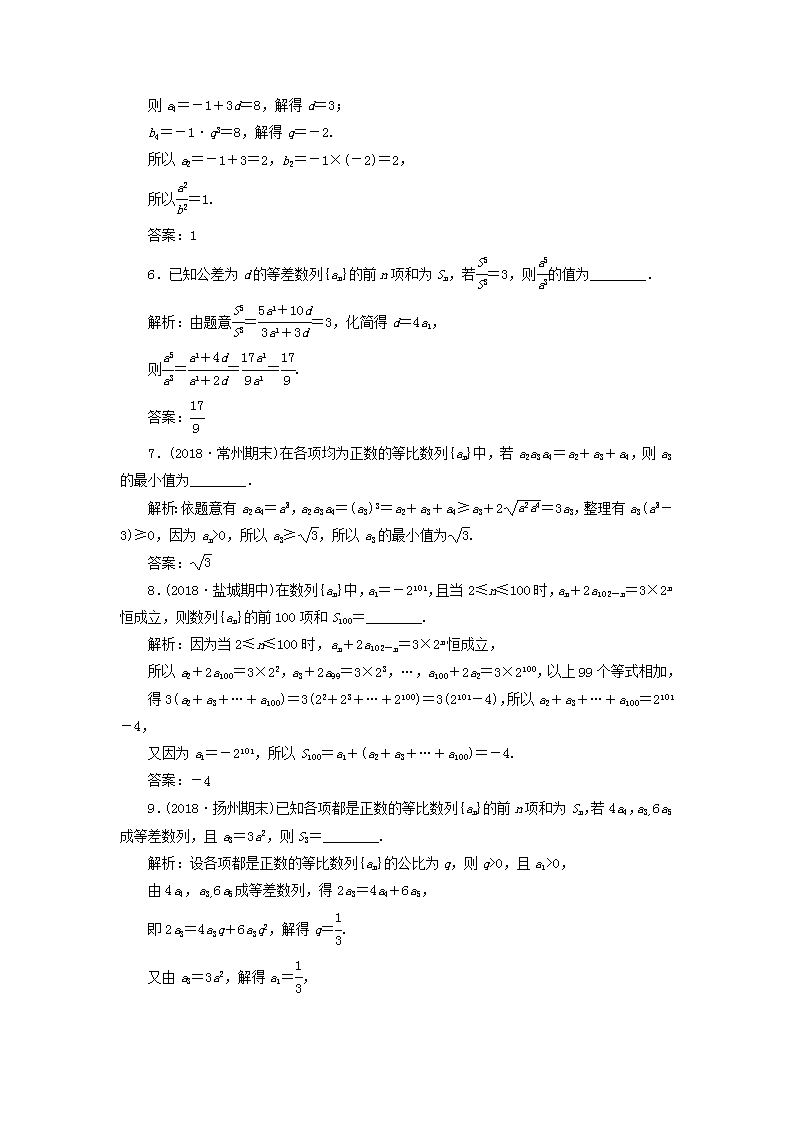 则 a₄=-1+3d=8,解得 d=3;
b₄=-1·q³=8,解得 q=-2.
所以 a₂=-1+3=2,b₂=-1×(-2)=2,
所以a2/b2=1.
答案:1
6.已知公差为 d 的等差数列{aₙ}的前 n 项和为 Sₙ,若S5/S3=3,则a5/a3的值为________.
解析:由题意S5/S3=(5a1+10d)/(3a1+3d)=3,化简得 d=4a₁,
则a5/a3=(a1+4d)/(a1+2d)=17a1/9a1=17/9.
答案:17/9
7.(2018·常州期末)在各项均为正数的等比数列{aₙ}中,若 a₂a₃a₄=a₂+a₃+a₄,则 a₃
的最小值为________.
解析:依题意有 a₂a₄=a²₃,a₂a₃a₄=(a₃)³=a₂+a₃+a₄≥a₃+2√(a2a4)=3a₃,整理有 a₃(a²₃-
3)≥0,因为 aₙ>0,所以 a₃≥√3,所以 a₃的最小值为√3.
答案:√3
8.(2018·盐城期中)在数列{aₙ}中,a₁=-2¹⁰¹,且当 2≤n≤100 时,aₙ+2a₁₀₂₋ₙ=3×2ⁿ
恒成立,则数列{aₙ}的前 100 项和 S₁₀₀=________.
解析:因为当 2≤n≤100 时,aₙ+2a₁₀₂₋ₙ=3×2ⁿ恒成立,
所以 a₂+2a₁₀₀=3×2²,a₃+2a₉₉=3×2³,…,a₁₀₀+2a₂=3×2¹⁰⁰,以上 99 个等式相加,
得 3(a₂+a₃+…+a₁₀₀)=3(2²+2³+…+2¹⁰⁰)=3(2¹⁰¹-4),所以 a₂+a₃+…+a₁₀₀=2¹⁰¹
-4,
又因为 a₁=-2¹⁰¹,所以 S₁₀₀=a₁+(a₂+a₃+…+a₁₀₀)=-4.
答案:-4
9.(2018·扬州期末)已知各项都是正数的等比数列{aₙ}的前 n 项和为 Sₙ,若 4a₄,a₃,6a₅
成等差数列,且 a₃=3a²,则 S₃=________.
解析:设各项都是正数的等比数列{aₙ}的公比为 q,则 q>0,且 a₁>0,
由 4a₄,a₃,6a₅成等差数列,得 2a₃=4a₄+6a₅,
即 2a₃=4a₃q+6a₃q²,解得 q=1/3.
又由 a₃=3a²,解得 a₁=1/3,